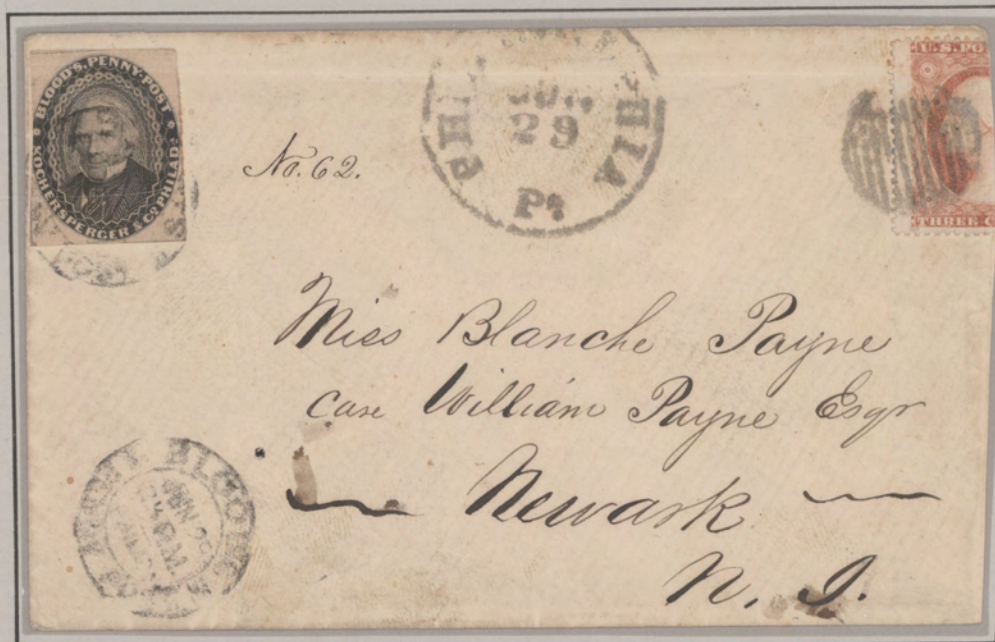 BLOOD'S PENNY-POST
KOCHERSPERGER & CO. PHILAD:
No. 62.
29
Pa
U.S. PO
THREE C
Miss Blanche Payne
Care William Payne Esqr
Newark
N. J.